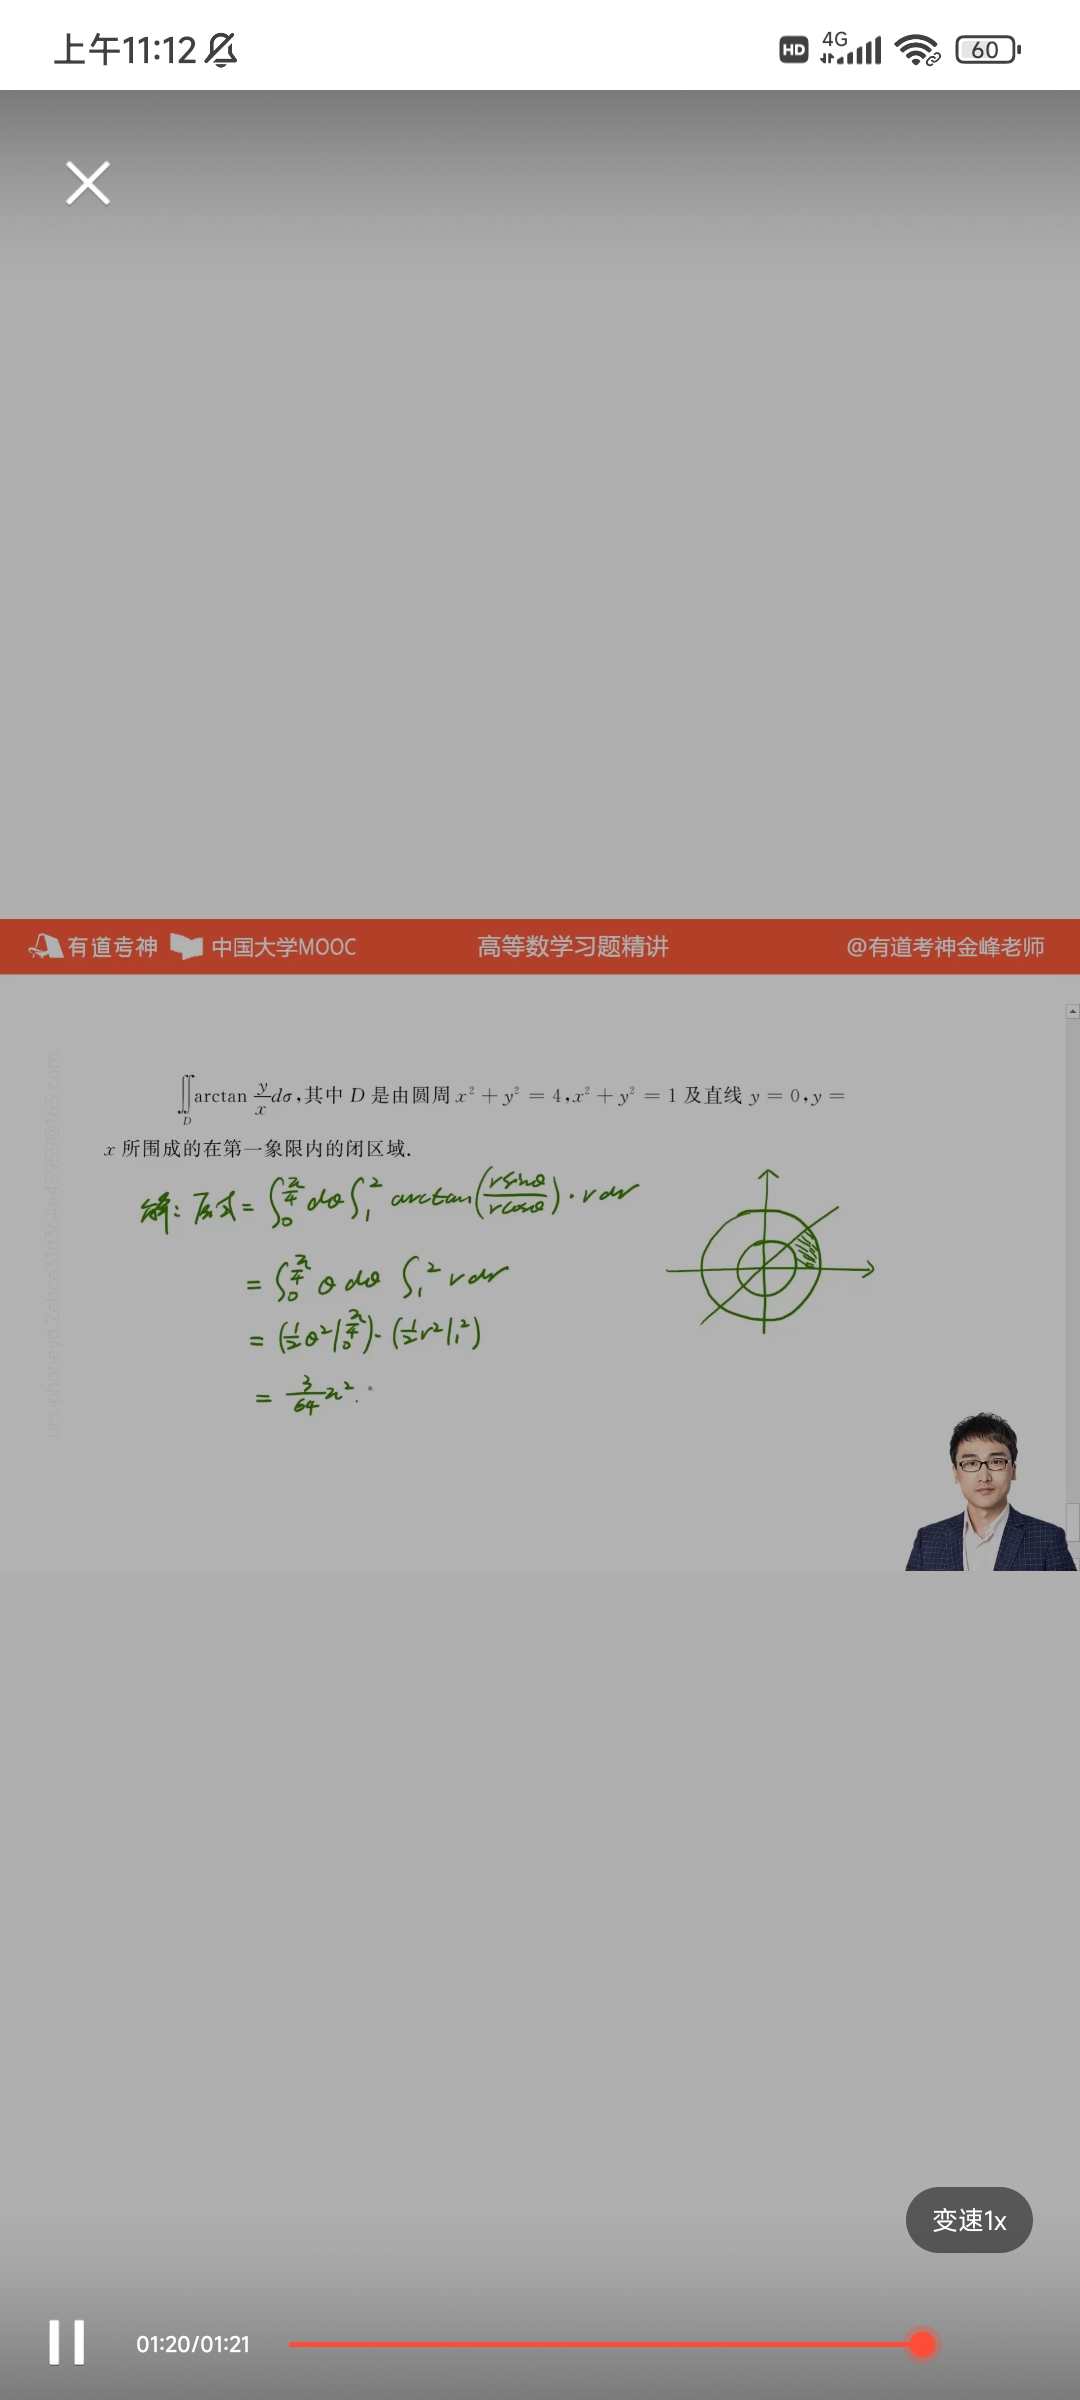 上午11:12 HD 4G 60
有道考神 中国大学MOOC 高等数学习题精讲 @有道考神金峰老师
∬_D arctan y/x dσ,其中 D 是由圆周 x² + y² = 4,x² + y² = 1 及直线 y = 0,y =
x 所围成的在第一象限内的闭区域.
解: 原式 = ∫_0^{π/4} dθ ∫_1^2 arctan(rsinθ/rcosθ) · r dr
= ∫_0^{π/4} θ dθ ∫_1^2 r dr
= (1/2 θ² |_0^{π/4}) · (1/2 r² |_1^2)
= 3/64 π².
变速1x
01:20/01:21